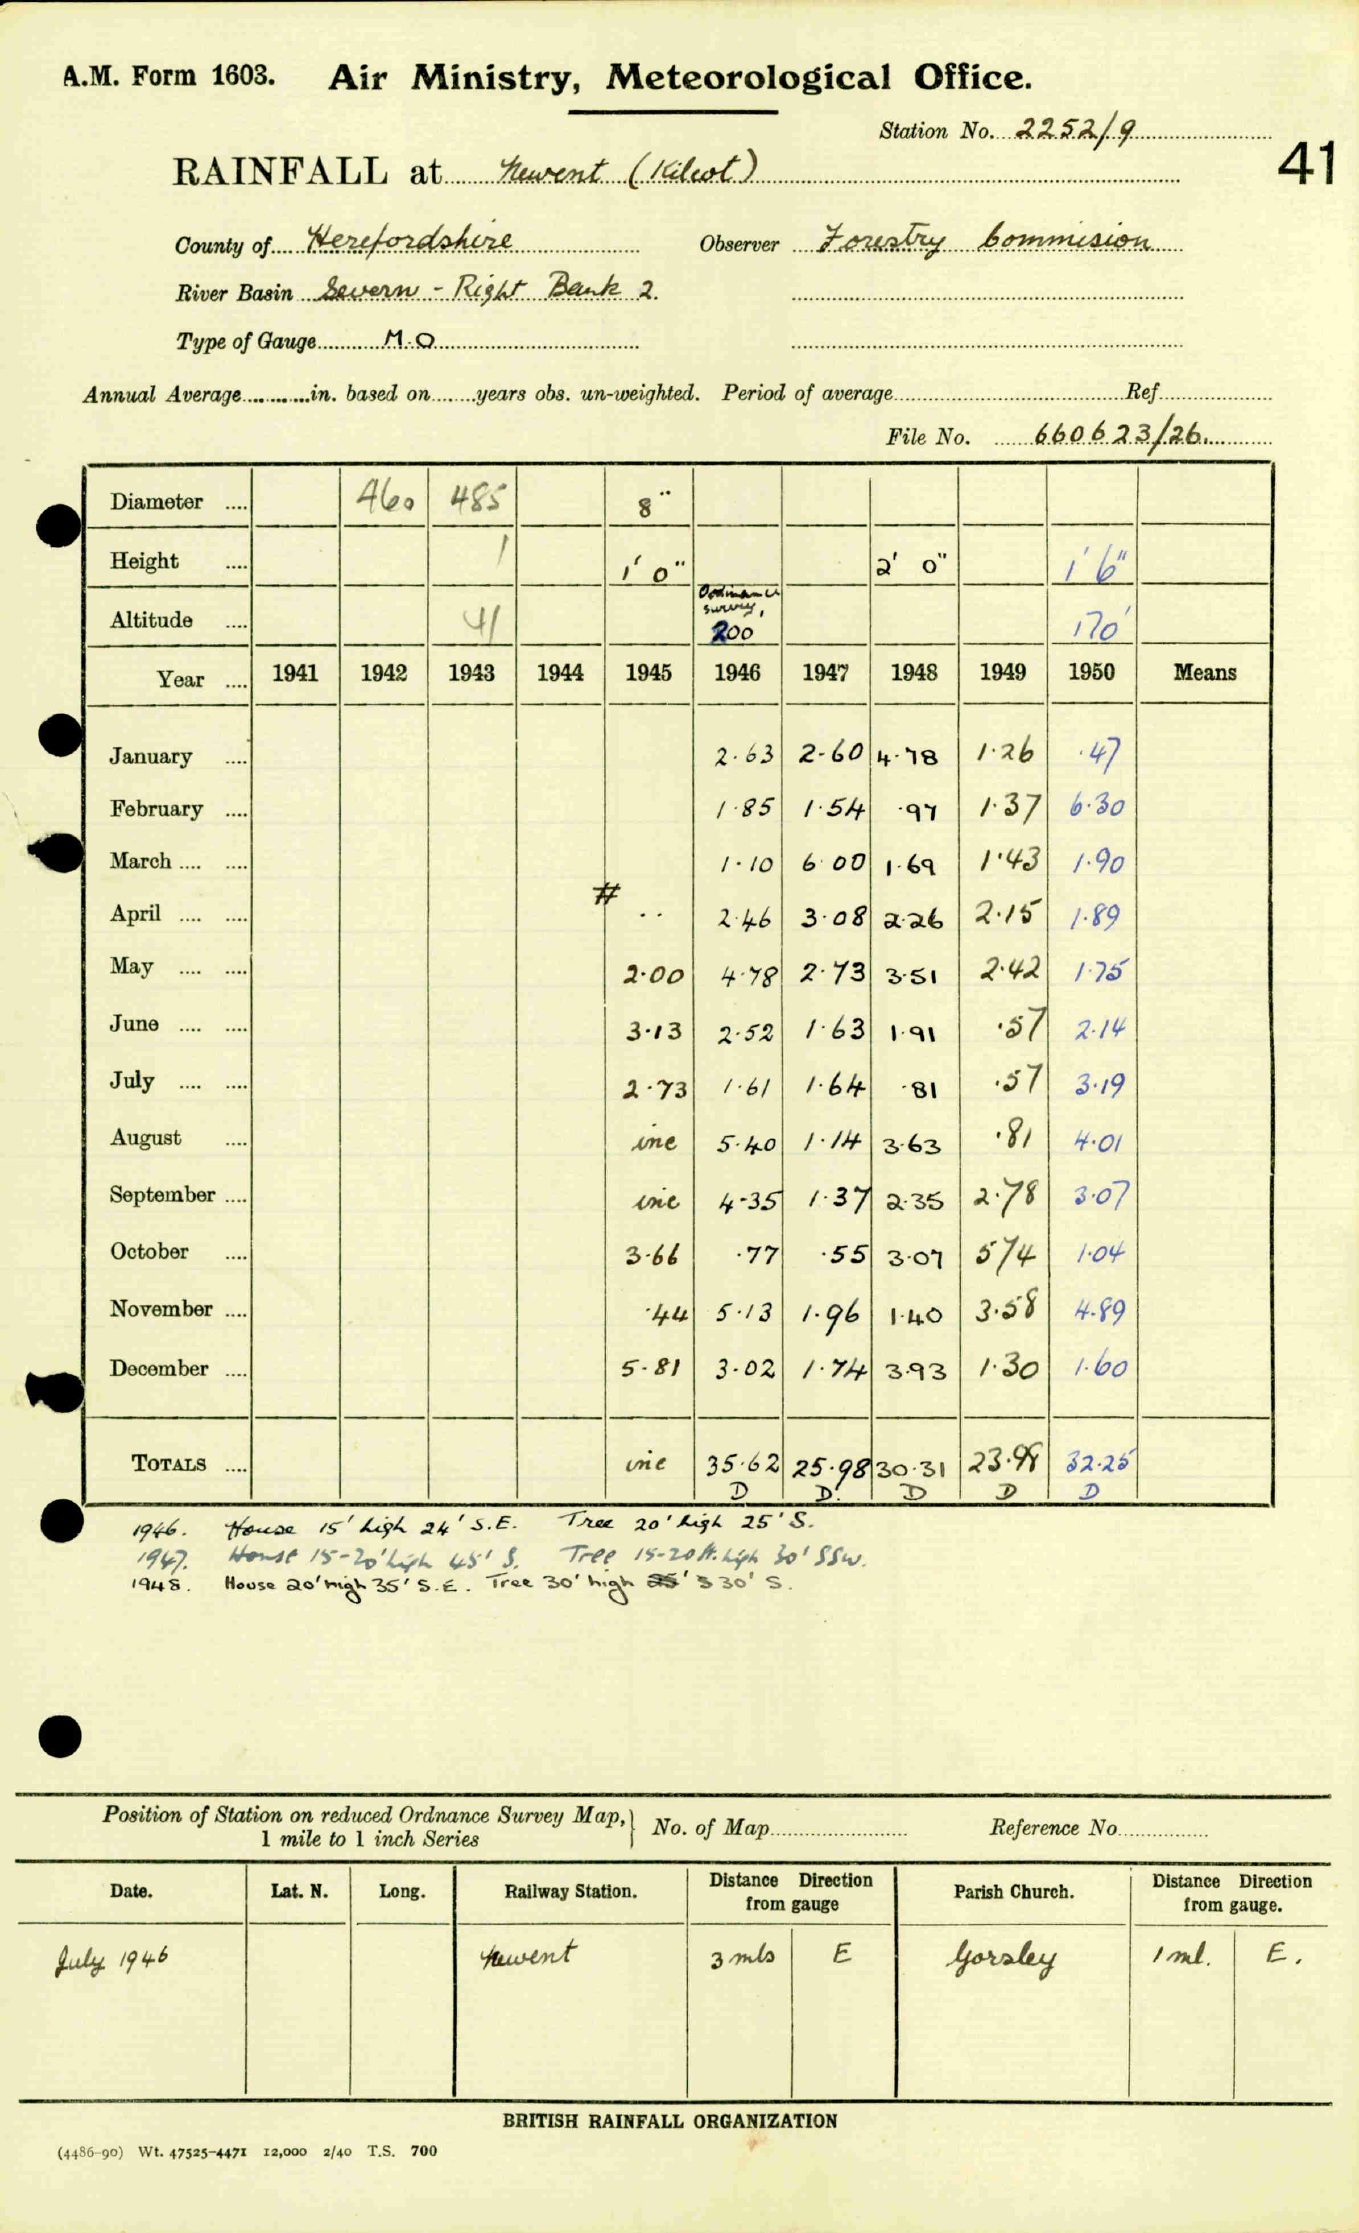 A.M. Form 1603. Air Ministry, Meteorological Office.
Station No. 2252/9
41
RAINFALL at Newent (Kilcot)
County of Herefordshire Observer Forestry Commision
River Basin Severn - Right Bank 2.
Type of Gauge M.O
Annual Average in. based on years obs. un-weighted. Period of average Ref
File No. 660623/26.
Diameter 460 485 8"
Height 1 1' 0" 2' 0" 1' 6"
Ordinance
survey,
Altitude 41 200 170'
Year 1941 1942 1943 1944 1945 1946 1947 1948 1949 1950 Means
January 2.63 2.60 4.78 1.26 .47
February 1.85 1.54 .97 1.37 6.30
March 1.10 6.00 1.69 1.43 1.90
#
April .. 2.46 3.08 2.26 2.15 1.89
May 2.00 4.78 2.73 3.51 2.42 1.75
June 3.13 2.52 1.63 1.91 .57 2.14
July 2.73 1.61 1.64 .81 .57 3.19
August inc 5.40 1.14 3.63 .81 4.01
September inc 4.35 1.37 2.35 2.78 3.07
October 3.66 .77 .55 3.07 5/4 1.04
November .44 5.13 1.96 1.40 3.58 4.89
December 5.81 3.02 1.74 3.93 1.30 1.60
TOTALS inc 35.62 25.98 30.31 23.98 32.25
D D. D D D
1946. House 15' high 24' S.E. Tree 20' high 25' S.
1947. House 15-20' high 45' S. Tree 15-20 ft. high 30' SSW.
1948. House 20' high 35' S.E. Tree 30' high 25' S 30' S.
Position of Station on reduced Ordnance Survey Map,
1 mile to 1 inch Series
No. of Map Reference No
Date. Lat. N. Long. Railway Station. Distance Direction from gauge Parish Church. Distance Direction from gauge.
July 1946 Newent 3 mls E Gorsley 1 ml. E.
BRITISH RAINFALL ORGANIZATION
(4486-90) Wt. 47525-4471 12,000 2/40 T.S. 700